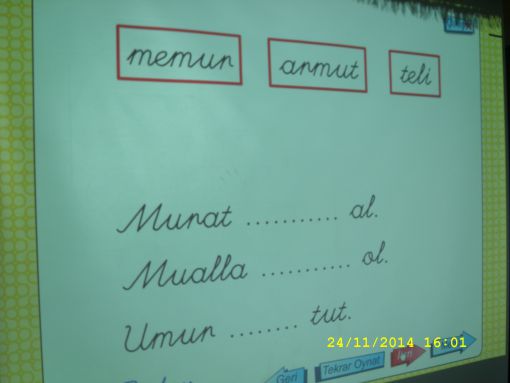 memur armut teli
Murat ........... al.
Mualla ........... ol.
Umur ........ tut.
24/11/2014 16:01
Geri Tekrar Oynat İleri